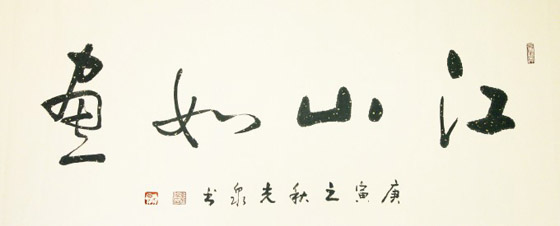 江山如画
庚寅之秋光泉书